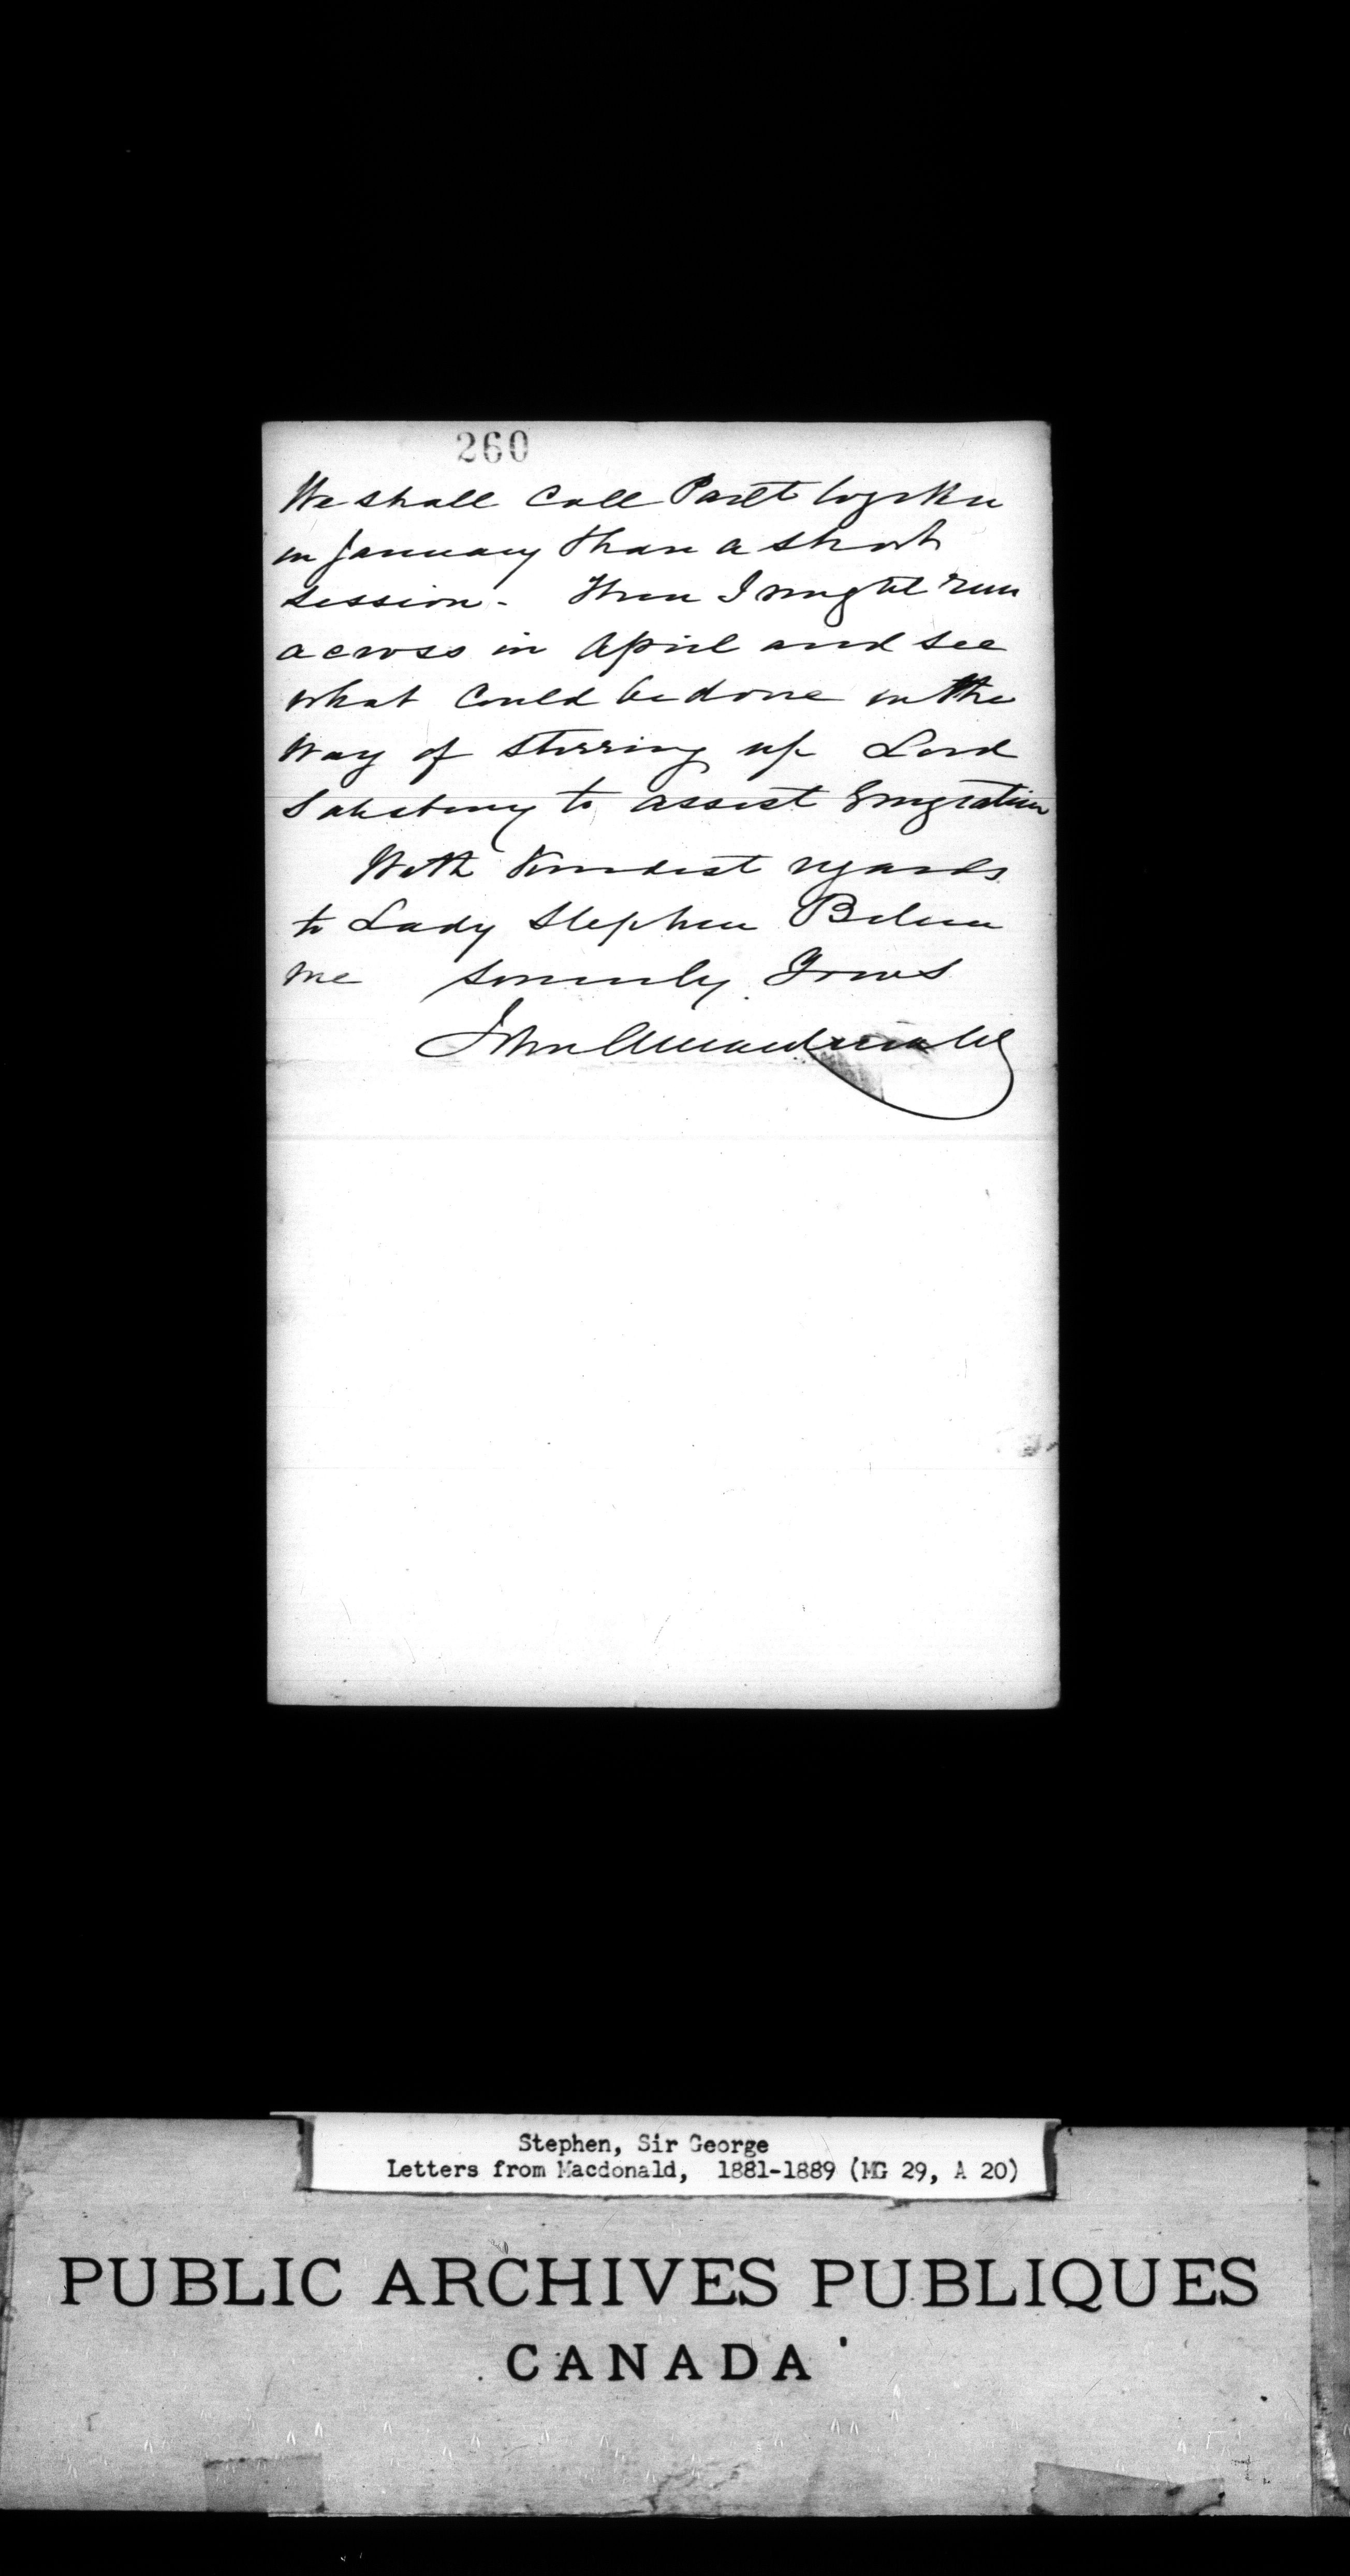 260
We shall call Parlt together
in January & have a short
session - Then I might run
across in April and see
what could be done in the
way of stirring up Lord
Salisbury to assist Emigration
With kindest regards
to Lady Stephen Believe
me sincerely Yours
John A Macdonald
Stephen, Sir George
Letters from Macdonald, 1881-1889 (MG 29, A 20)
PUBLIC ARCHIVES PUBLIQUES
CANADA